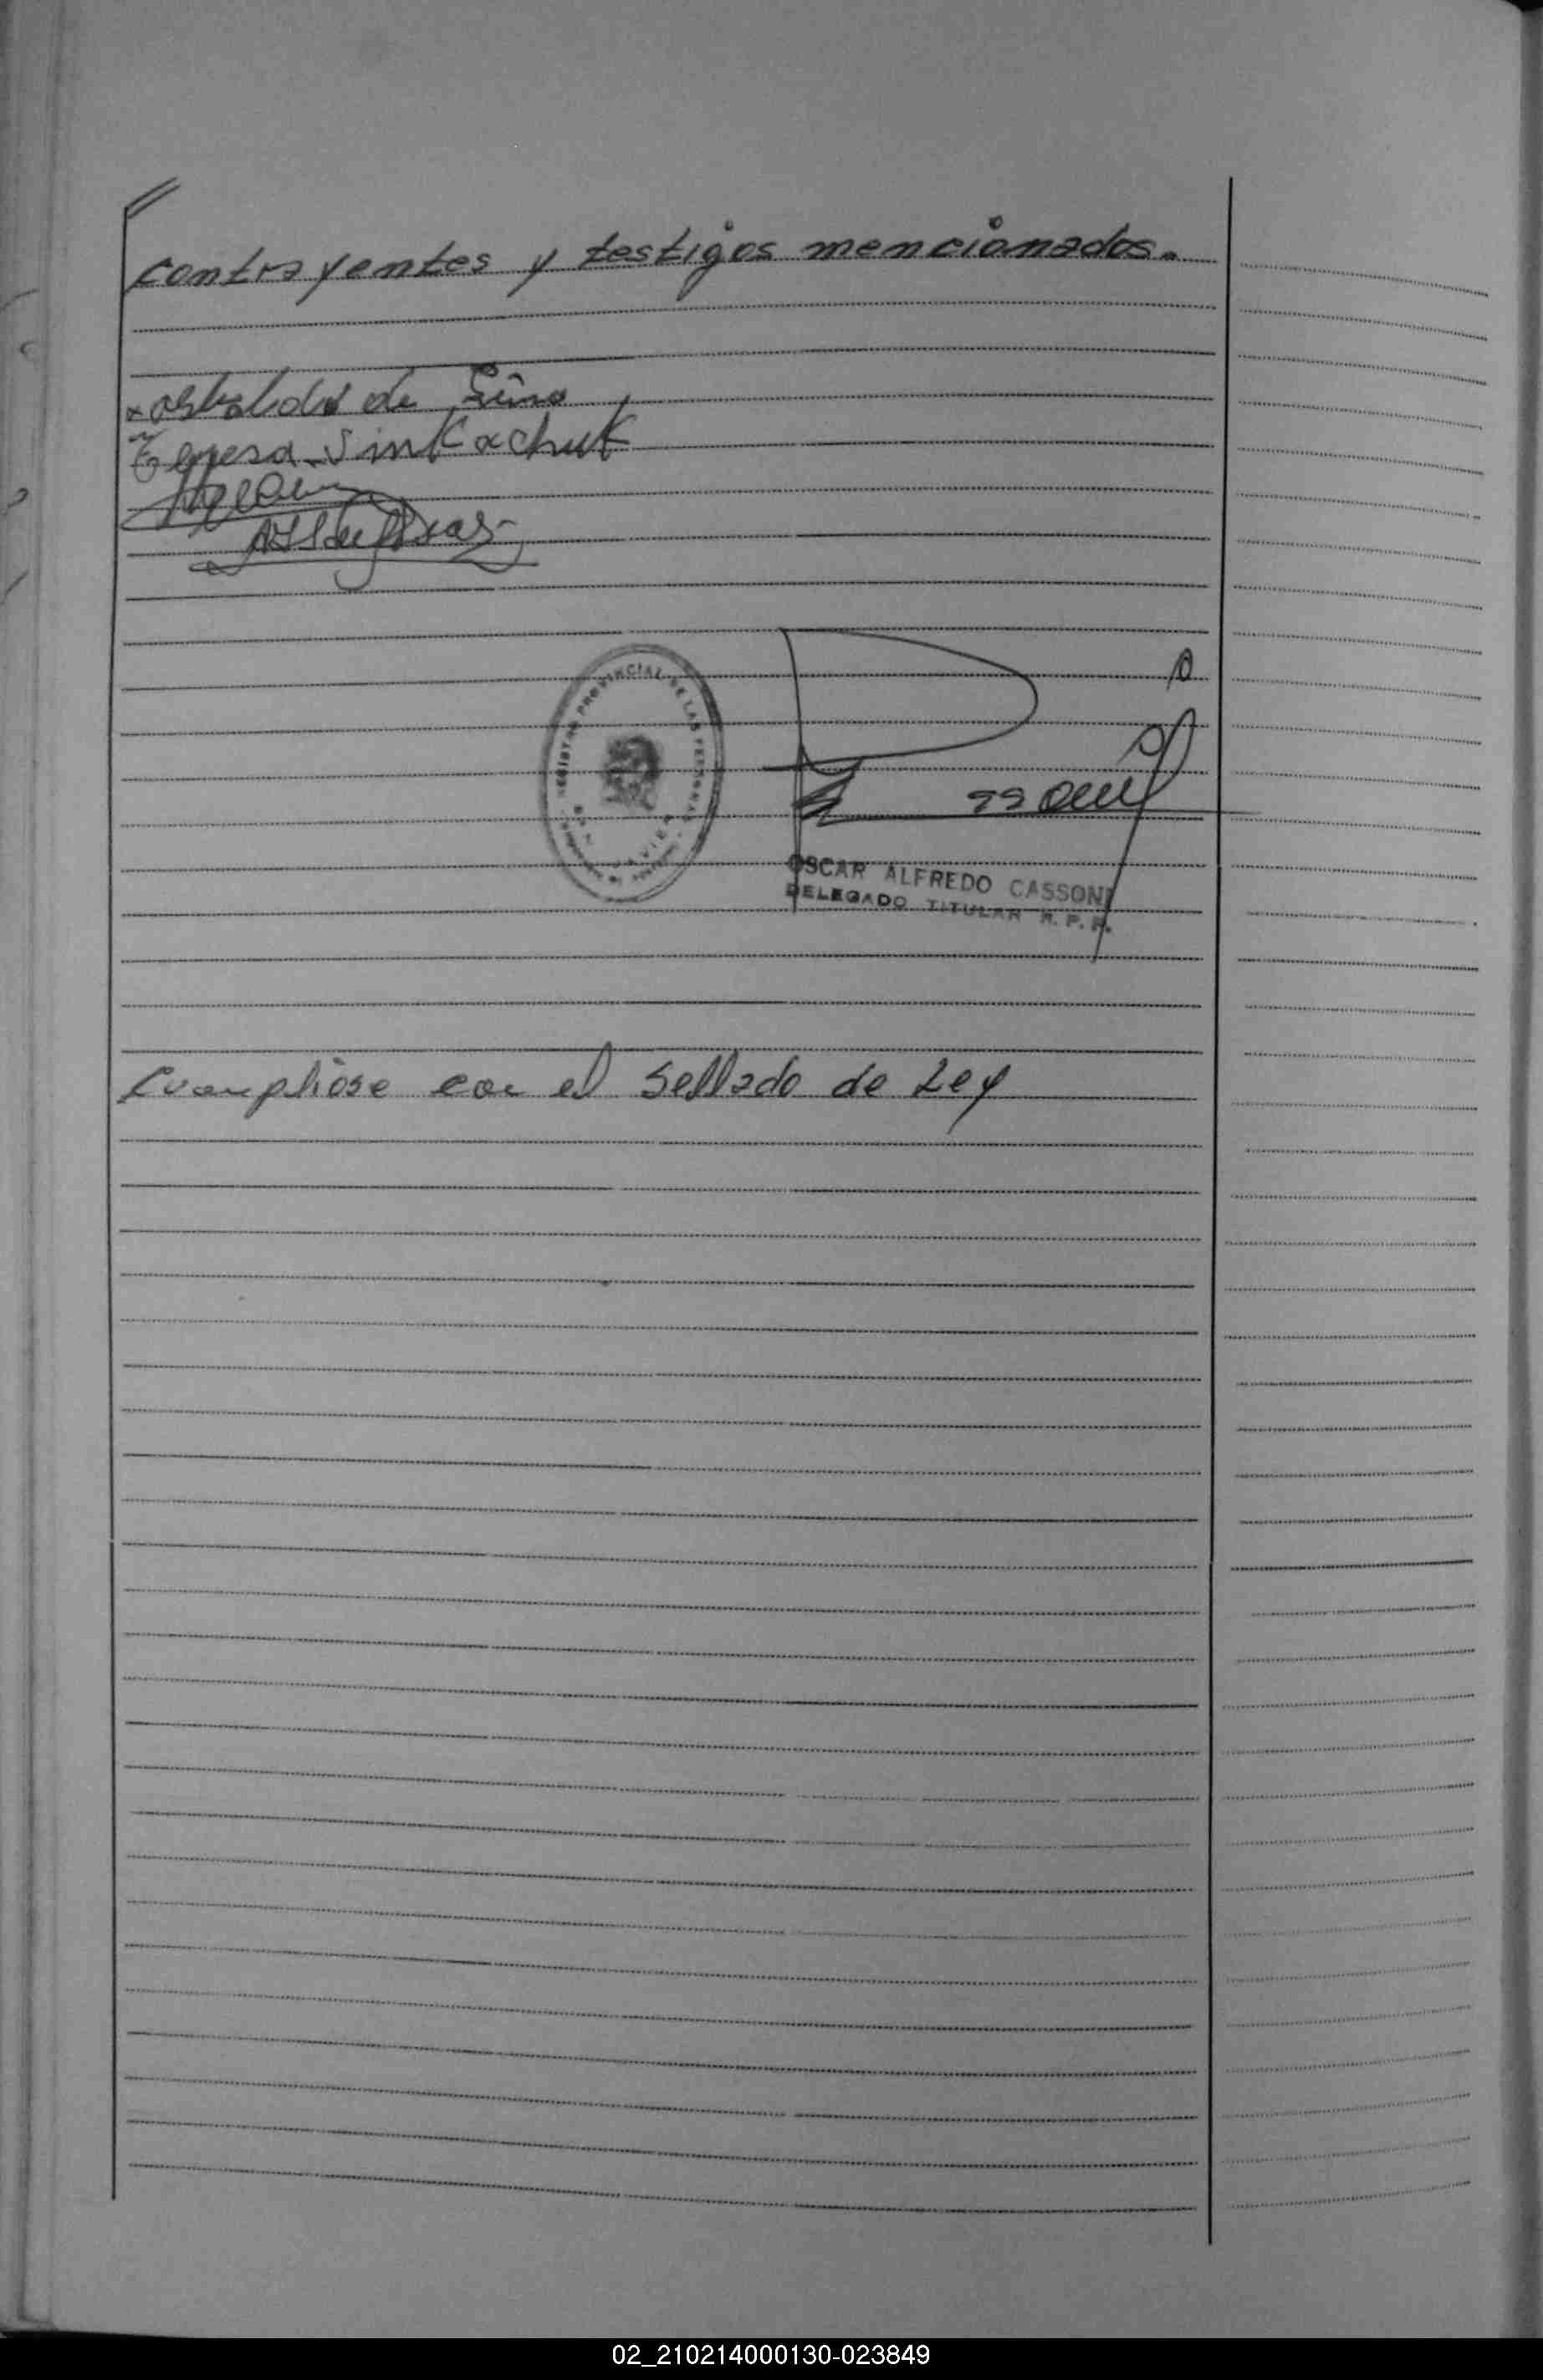 contrayentes y testigos mencionados.
de Lima
Teresa Sinkachuk
REGISTRO PROVINCIAL DE LAS PERSONAS
JAVIER
OSCAR ALFREDO CASSONI
DELEGADO TITULAR R. P. P.
Cumpliose con el Sellado de Ley
02_210214000130-023849